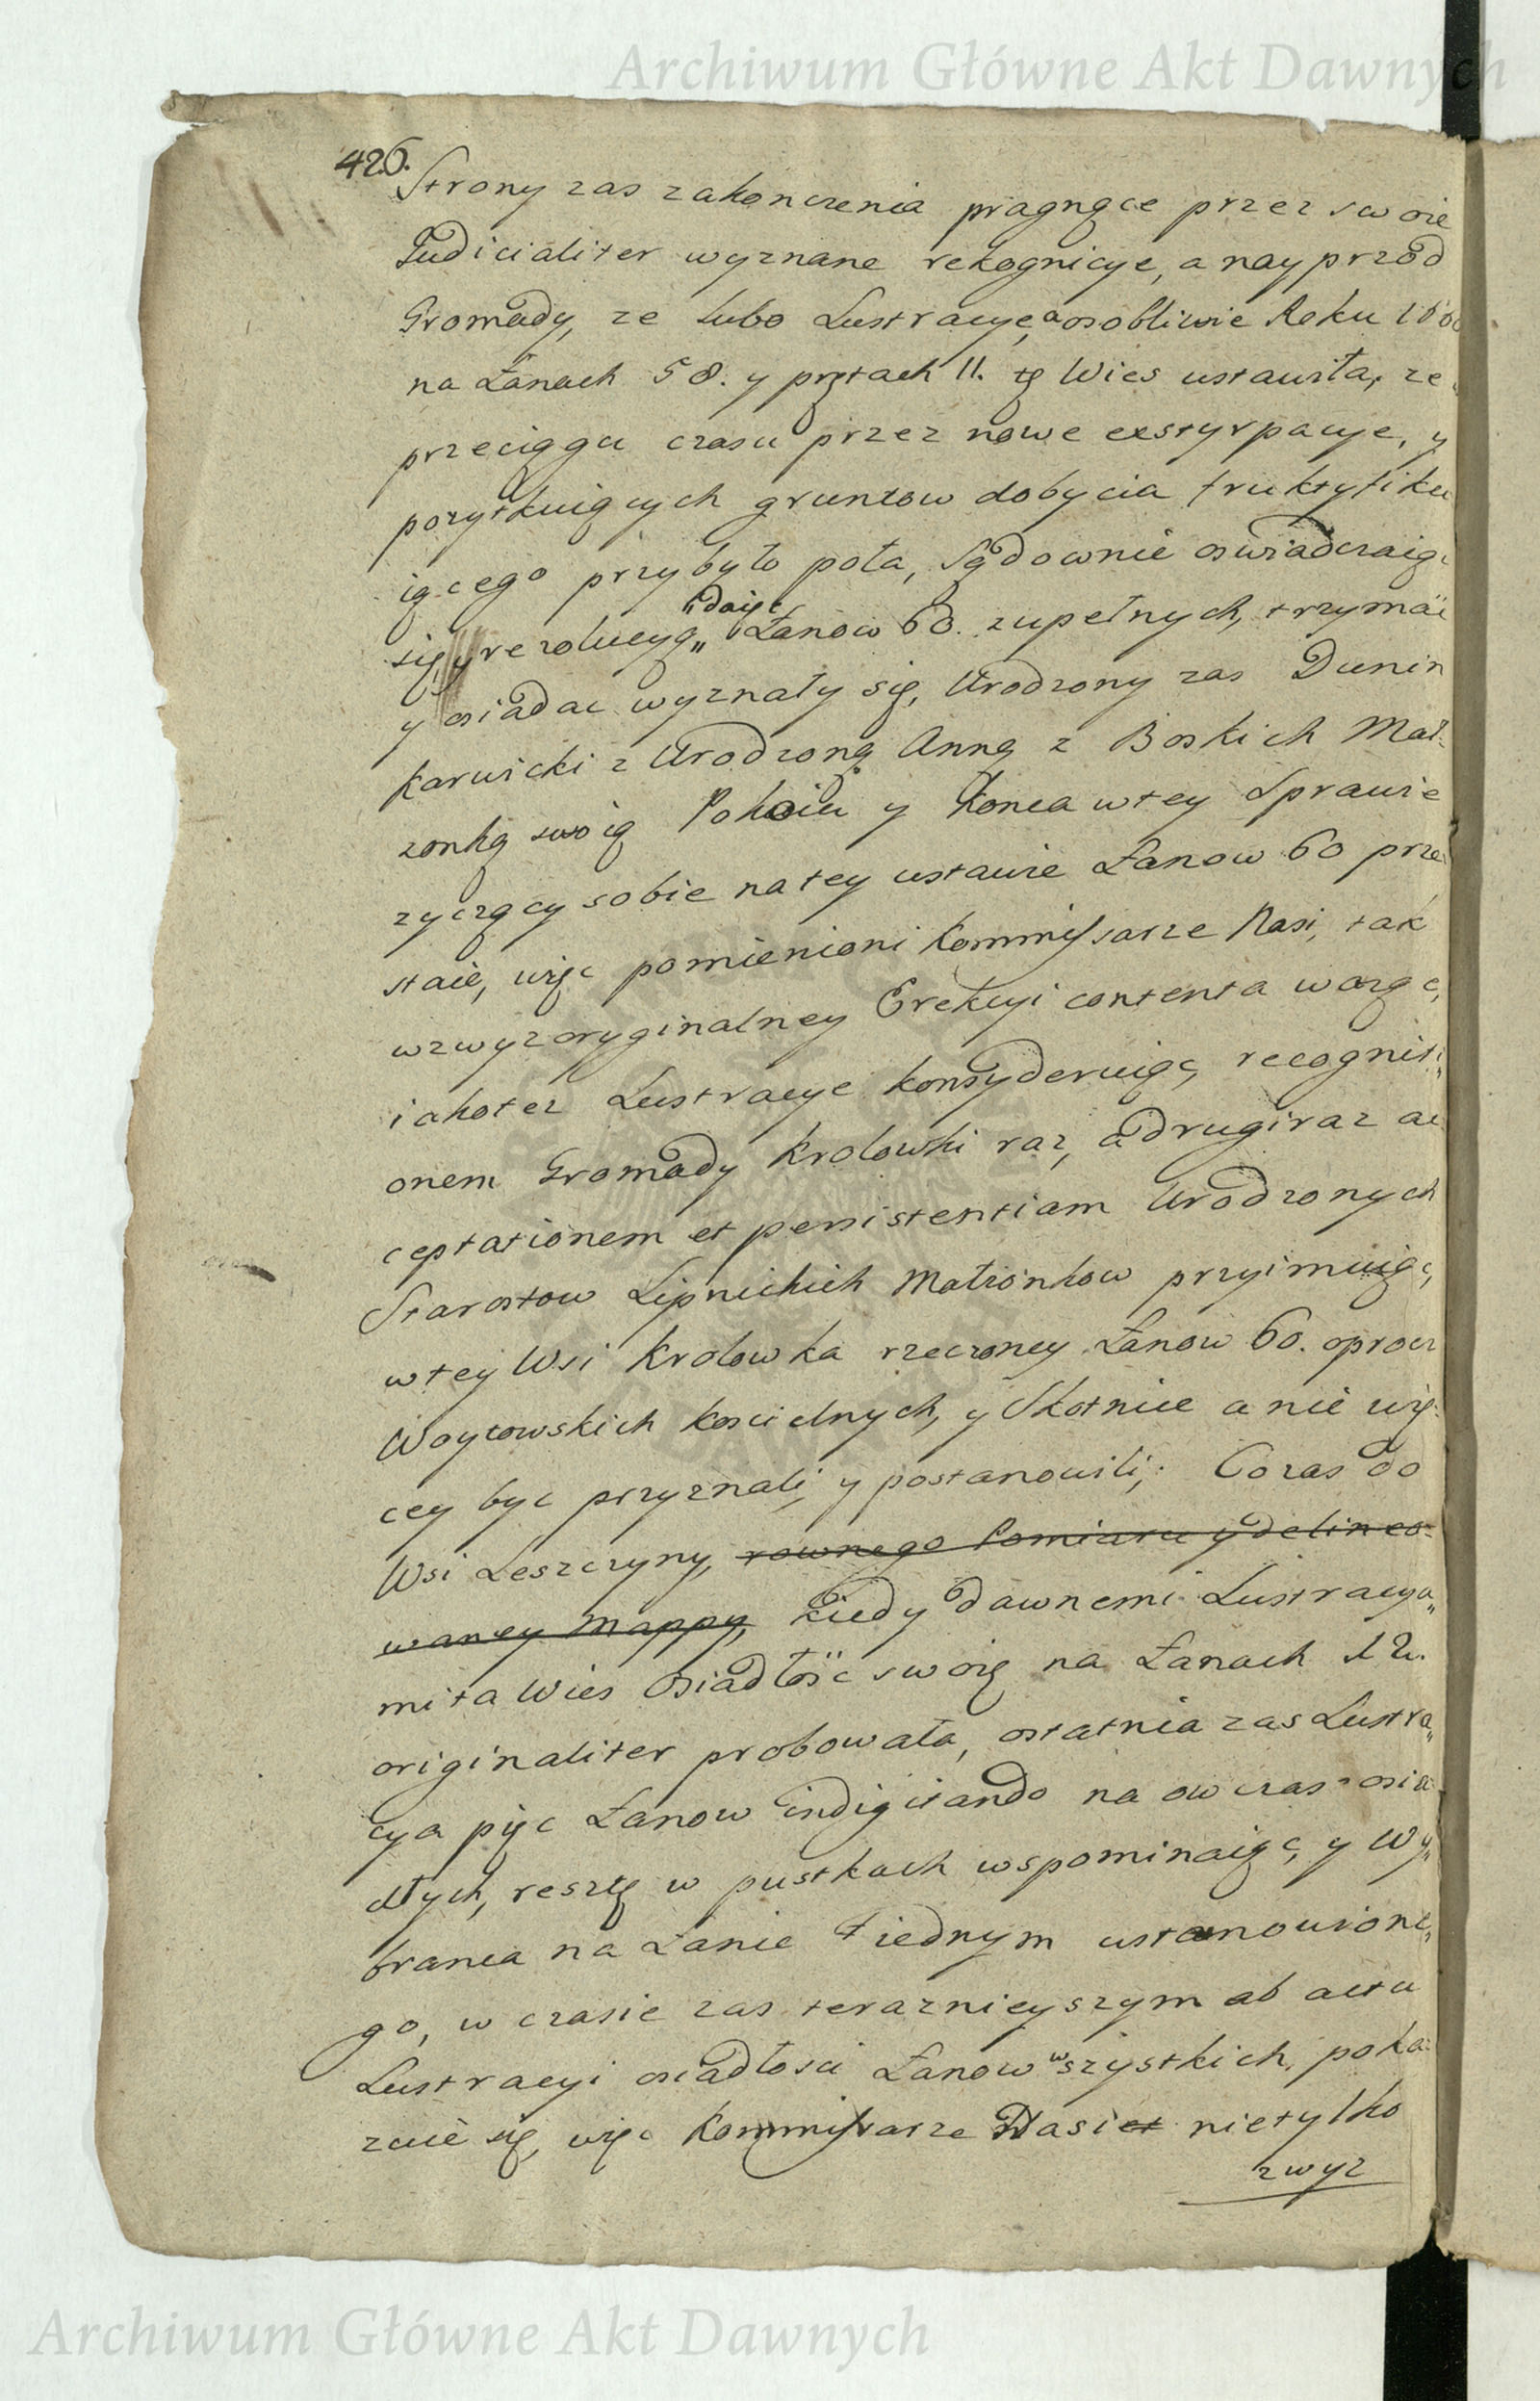 Archiwum Główne Akt Dawnych
426.
Strony zas zakonczenia pragnące przez swoie
Judicialiter wyznane rekognicye, a nayprzod
Gromady, ze lubo Lustracye, a osobliwie Roku
na Łanach 58. y prętach 11. tę Wies ustawiła, ze
przeciągu czasu przez nowe exstyrpacye, y
pozytkuiących gruntow dobycia fruktyfiku
iącego przybyło pola, Sądownie oswiadczaiąc
się, y rezolucyą „ daiąc Łanow 60. zupełnych, trzymać
y osiadac wyznały się, Urodzony zas Dunin
Karwicki z Urodzoną Anną z Boskich Mał-
zonką swoią Pokoiu y konca wtey Sprawie
zyczący sobie natey ustawie Łanow 60 prze
staie, więc pomienioni Kommissarze Nasi, tak
wzwyz oryginalney Erekcyi contenta waząc,
iakotez Lustracye konsyderuiąc, recogniti„
onem Gromady Krolowki raz, a drugiraz ac
ceptationem et persistentiam Urodzonych
Starostow Lipnickich Małzonkow przyimuiąc,
wtey Wsi Krolowka rzeczoney Łanow 60. oprocz
Woytowskich koscielnych, y Skotnice a nie wię-
cey byc przyznali, y postanowili; Co zas do
Wsi Leszczyny, rownego Pomiaru y delineo-
waney Mappy, kiedy dawnemi Lustracya„
mi ta Wies Osiadłość swoię na Łanach 12.
originaliter probowała, ostatnia zas Lustra„
cya pięc Łanow indigitando na ow czas osia
dłych, resztę w pustkach wspominaiąc, y Wy„
branca na Łanie iednym ustanowione„
go, w czasie zas teraznieyszym ab actu
Lustracyi osiadłosci Łanow wszystkich poka-
zuie się, więc Kommissarze Nasi et nietylko
zwyz
Archiwum Główne Akt Dawnych